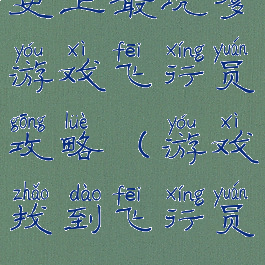 yóu xì fēi xíng yuán
游戏飞行员
gōng lüè yóu xì
攻略(游戏
zhǎo dào fēi xíng yuán
找到飞行员